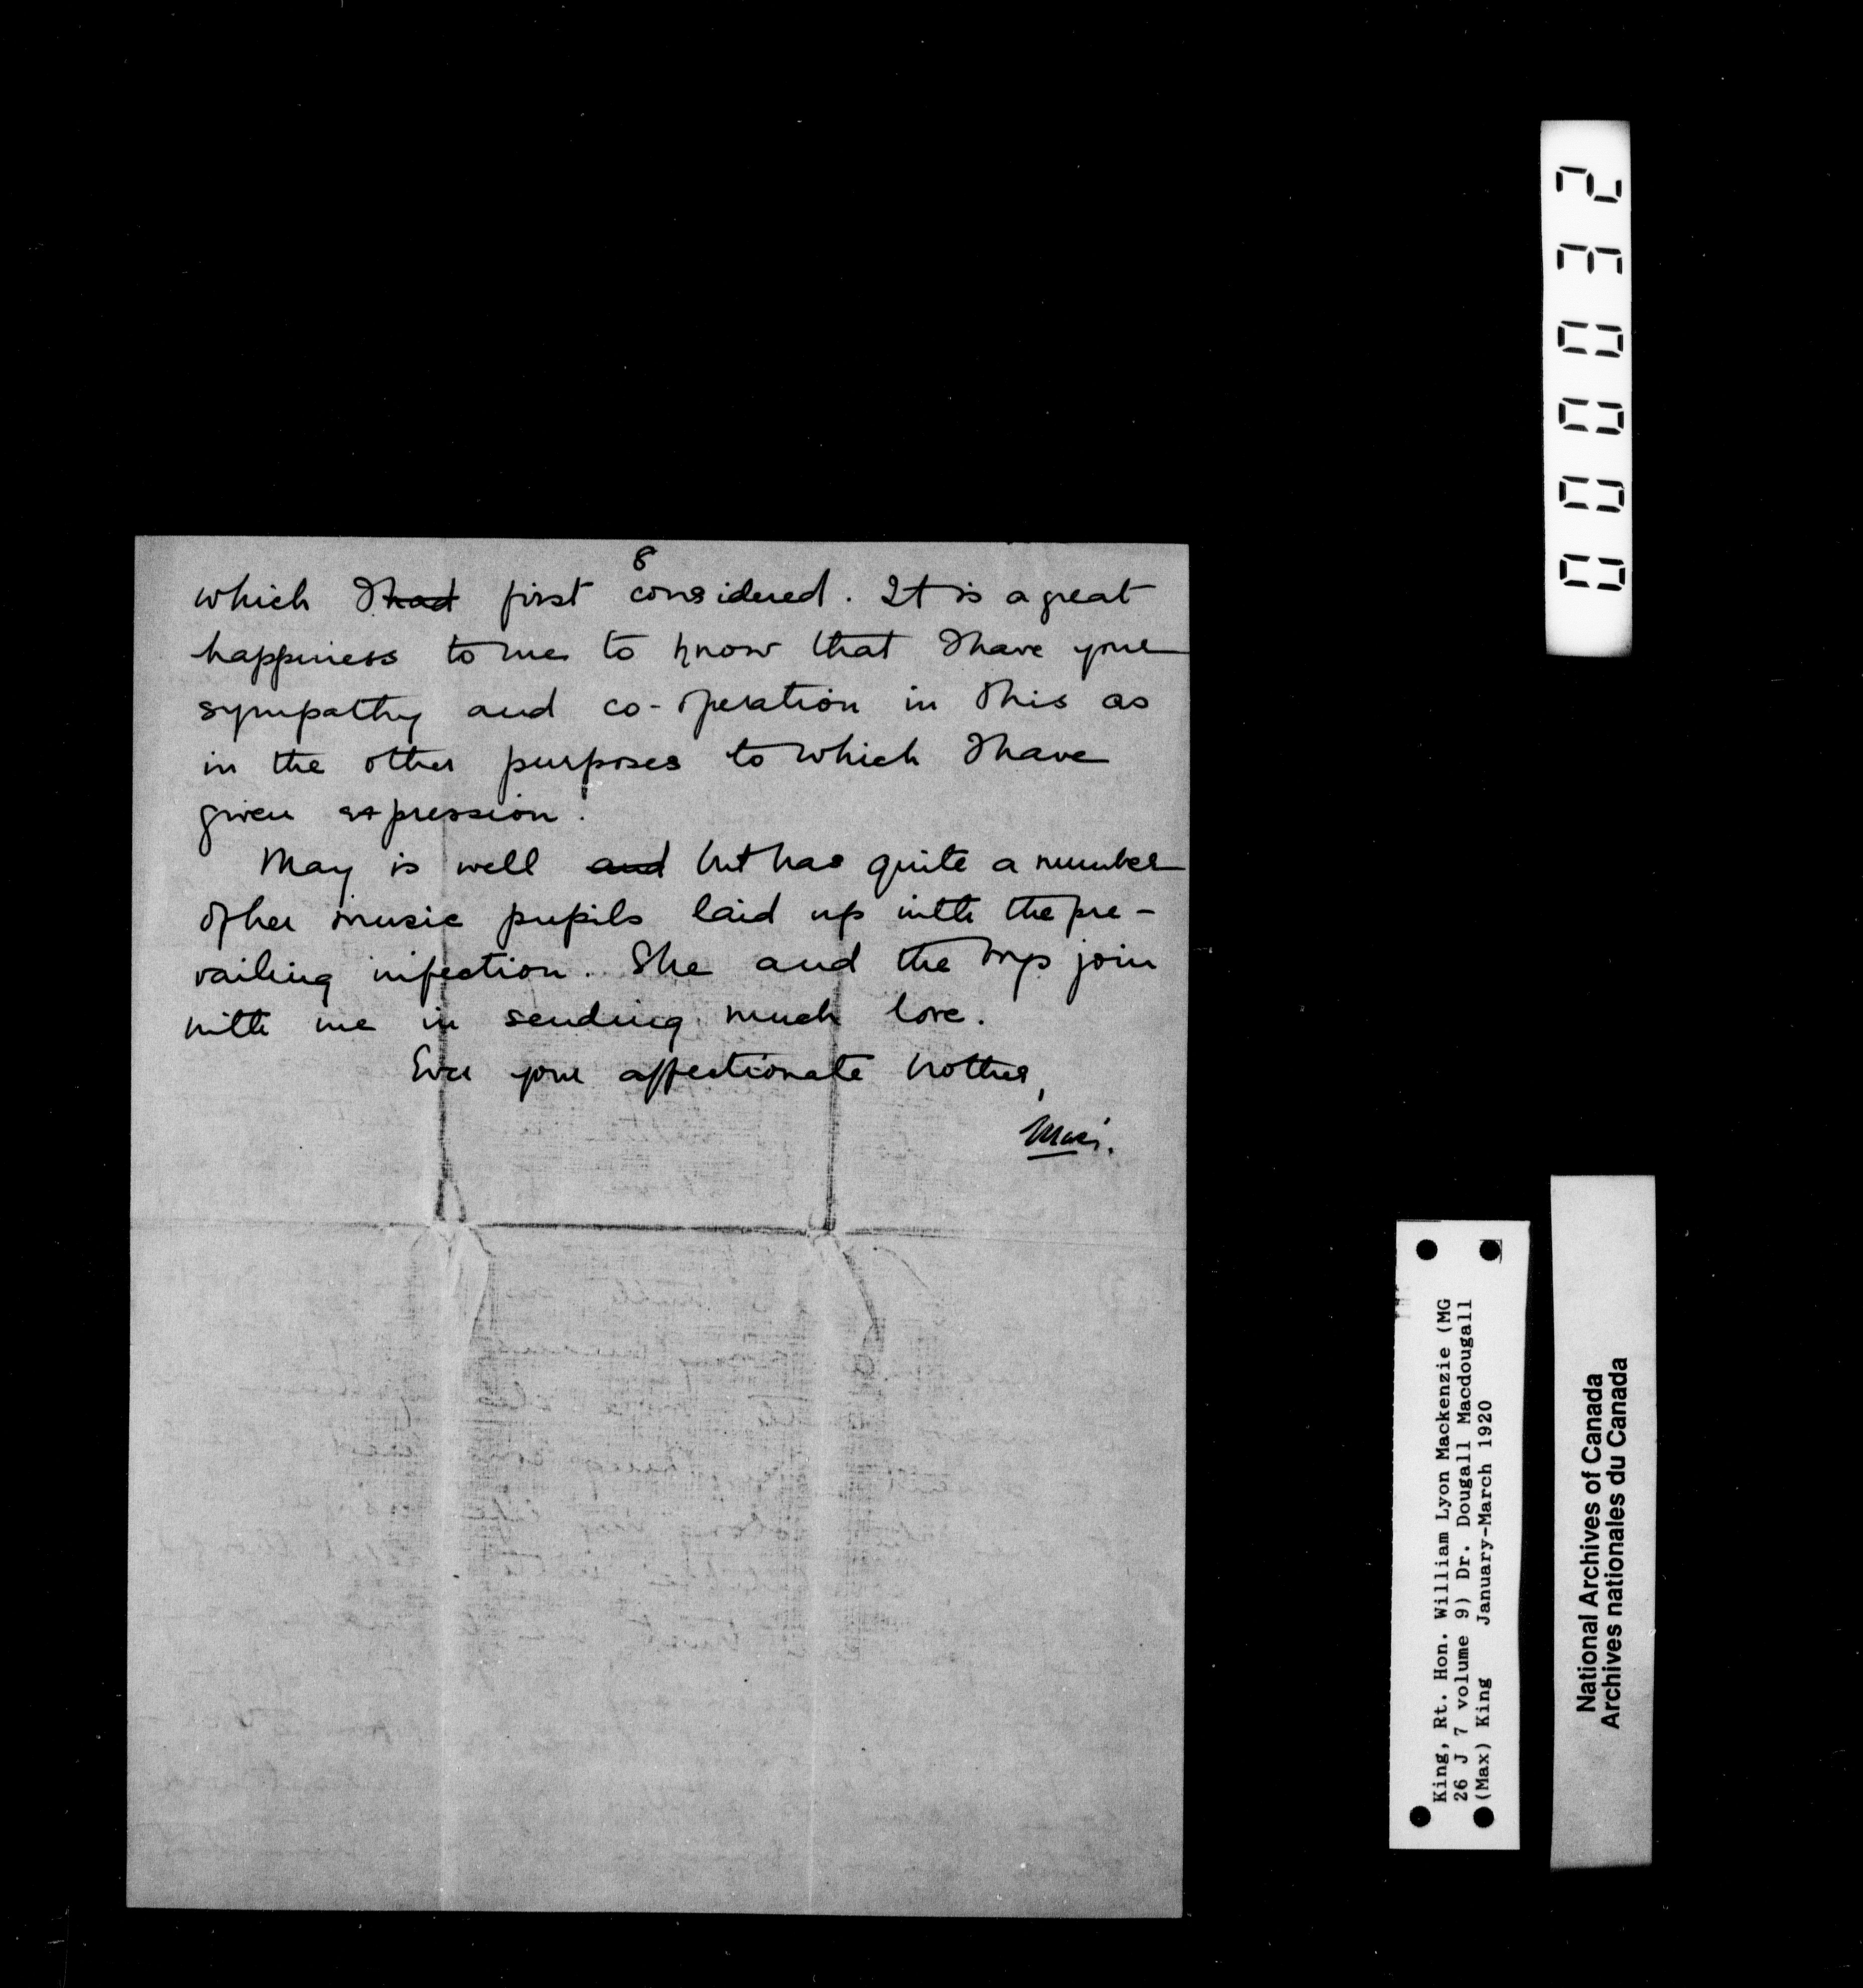 8
which I had first considered. It is a great
happiness to me to know that I have your
sympathy and co-operation in this as
in the other purposes to which I have
given expression.
May is well and but has quite a number
of her music pupils laid up with the pre-
vailing infection. She and the boys join
with me in sending much love.
Ever your affectionate brother,
Max.
000032
King, Rt. Hon. William Lyon Mackenzie (MG
26 J 7 volume 9) Dr. Dougall Macdougall
(Max) King January-March 1920
National Archives of Canada
Archives nationales du Canada